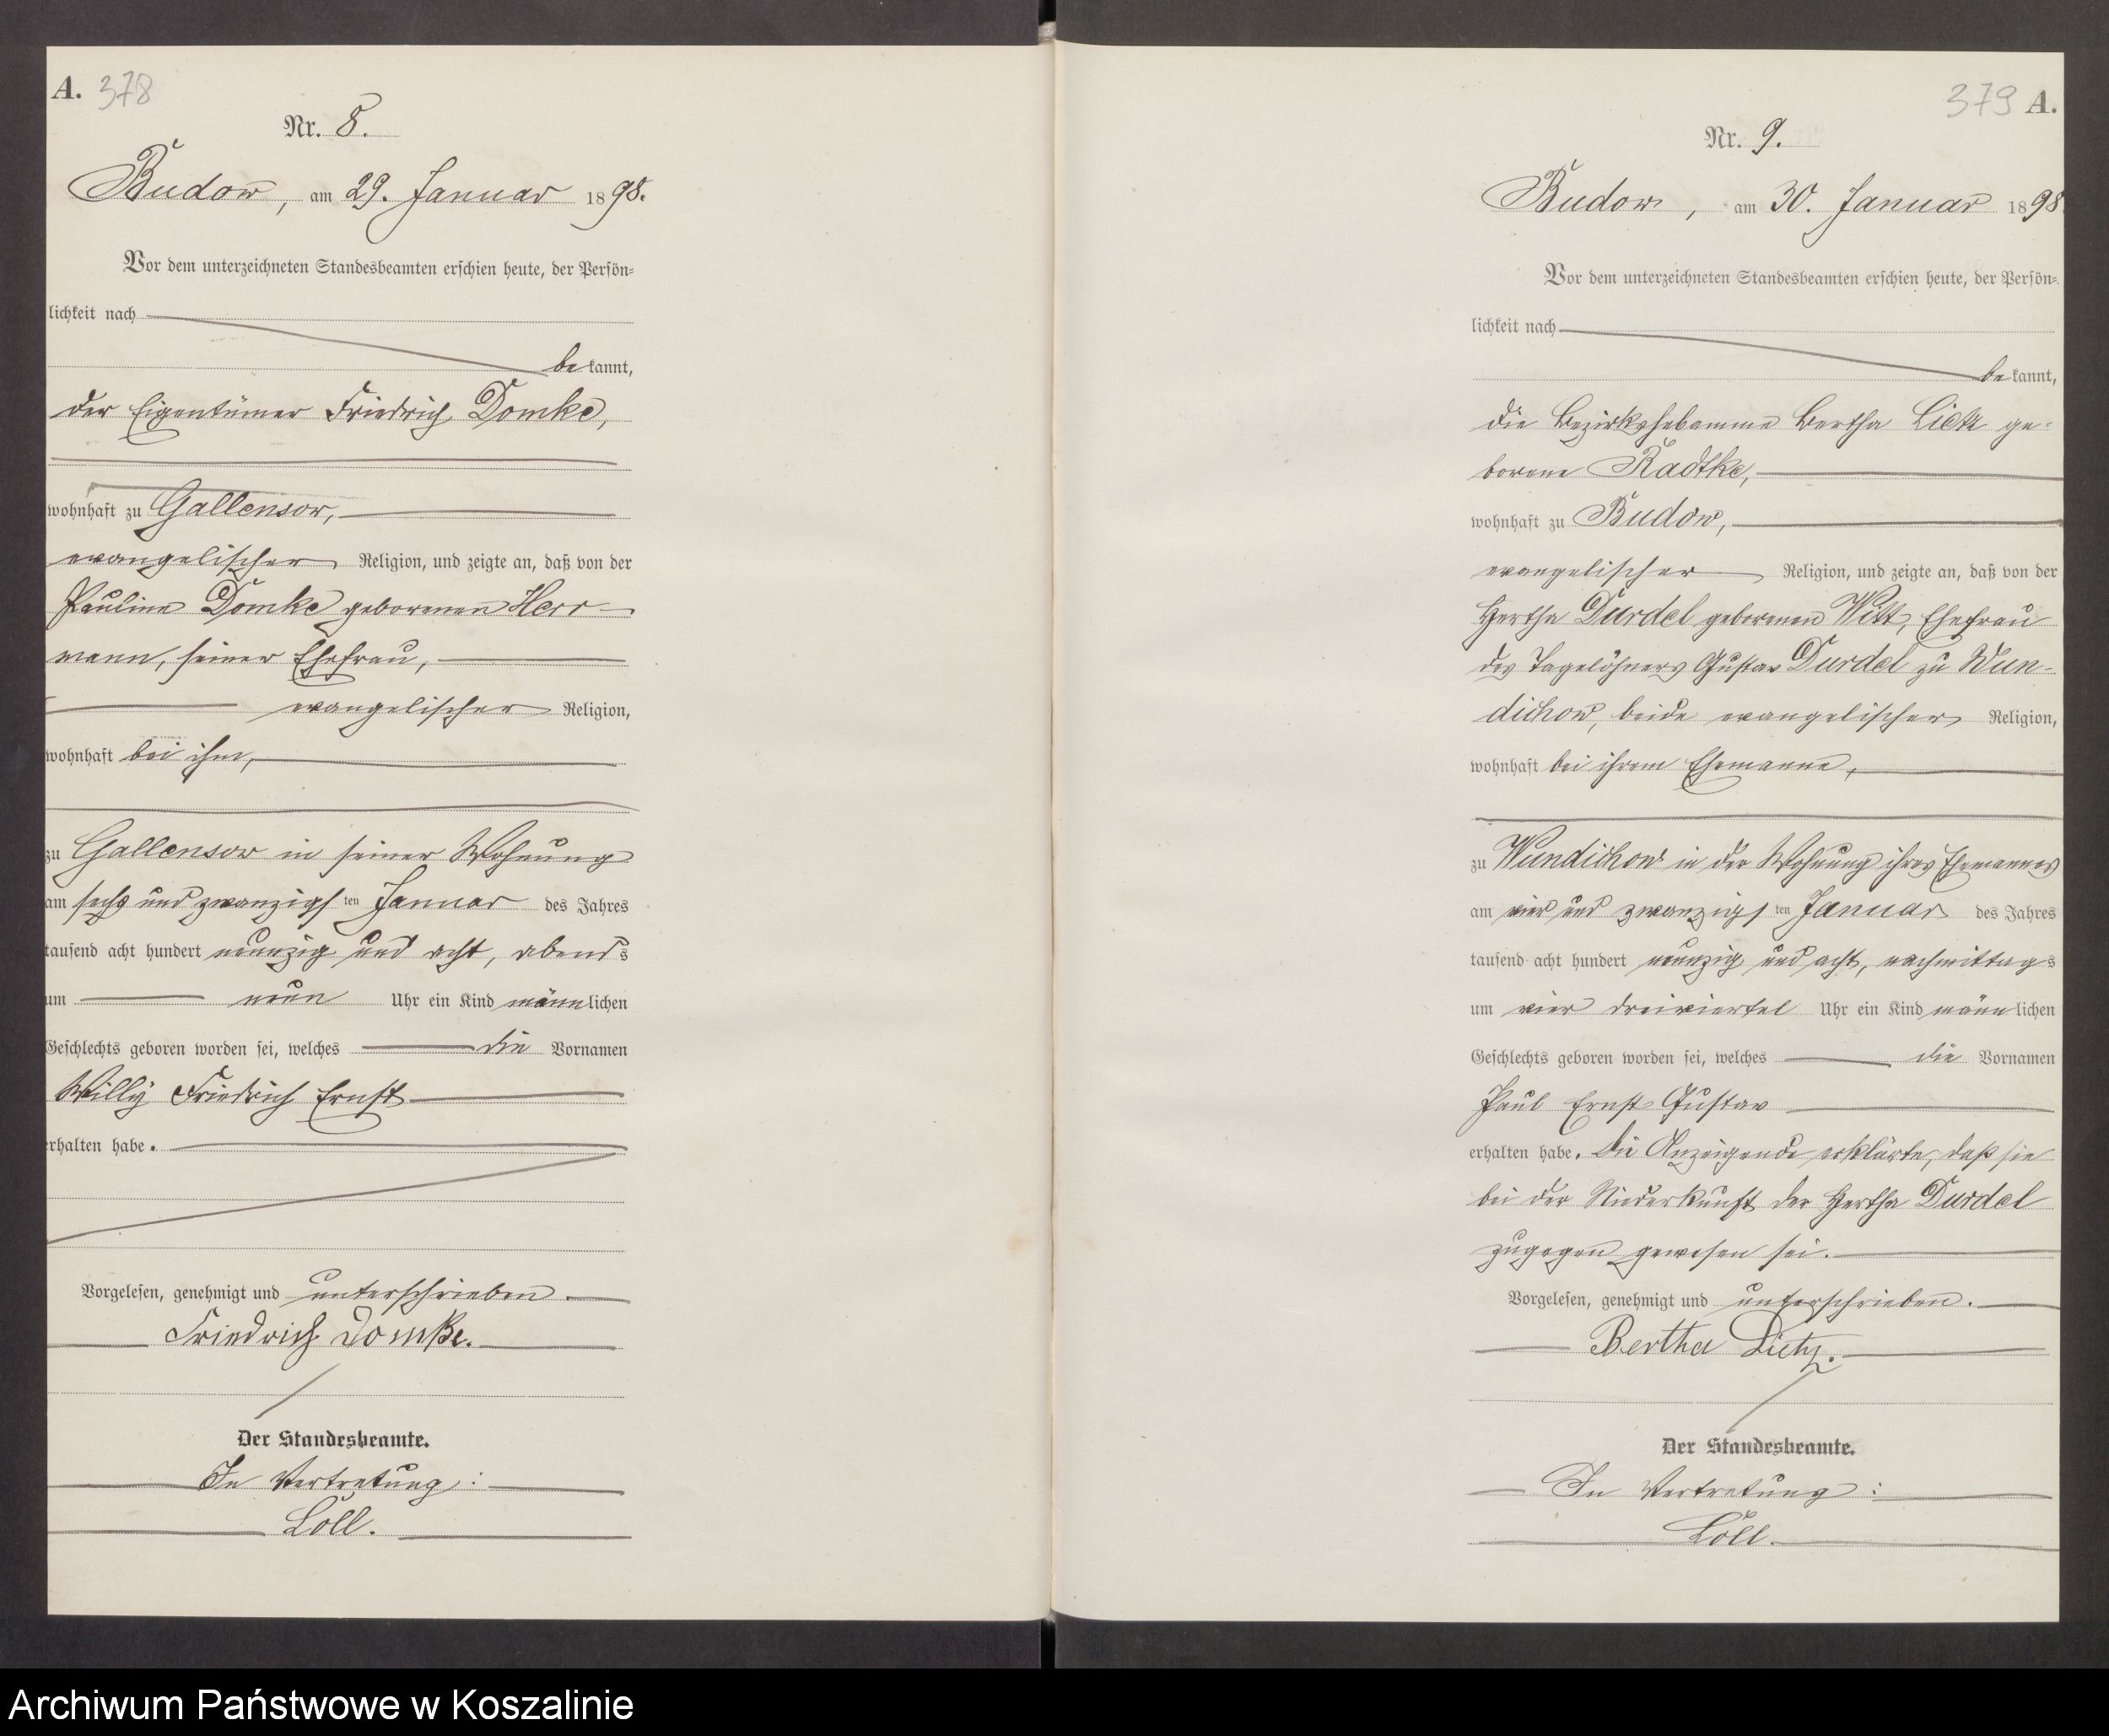 A. 378
Nr. 8.
Budow, am 29. Januar 1898.
Vor dem unterzeichneten Standesbeamten erschien heute, der Persön=
lichkeit nach
bekannt,
der Eigentümer Friedrich Domke,
wohnhaft zu Gallensow,
evangelischer Religion, und zeigte an, daß von der
Pauline Domke geborenen Herr-
mann, seiner Ehefrau,
evangelischer Religion,
wohnhaft bei ihm,
zu Gallensow in seiner Wohnung
am sechs und zwanzigsten Januar des Jahres
tausend acht hundert neunzig und acht, abends
um neun Uhr ein Kind männlichen
Geschlechts geboren worden sei, welches die Vornamen
Willy Friedrich Ernst
erhalten habe.
Vorgelesen, genehmigt und unterschrieben.
Friedrich Domke.
Der Standesbeamte.
In Vertretung:
Löll.
379 A.
Nr. 9.
Budow, am 30. Januar 1898
Vor dem unterzeichneten Standesbeamten erschien heute, der Persön=
lichkeit nach
bekannt,
die Bezirkshebamme Bertha Lietz ge-
borene Radtke,
wohnhaft zu Budow,
evangelischer Religion, und zeigte an, daß von der
Hertha Durdel geborenen Witt, Ehefrau
des Tagelöhners Gustav Durdel zu Wun-
dichow, beide evangelischer Religion,
wohnhaft bei ihrem Ehemanne,
zu Wundichow in der Wohnung ihres Ehemannes
am vier und zwanzigsten Januar des Jahres
tausend acht hundert neunzig und acht, nachmittags
um vier dreiviertel Uhr ein Kind männlichen
Geschlechts geboren worden sei, welches die Vornamen
Paul Ernst Gustav
erhalten habe. Die Anzeigende erklärte, daß sie
bei der Niederkunft der Hertha Durdel
zugegen gewesen sei.
Vorgelesen, genehmigt und unterschrieben.
Bertha Lietz.
Der Standesbeamte.
In Vertretung:
Löll.
Archiwum Państwowe w Koszalinie